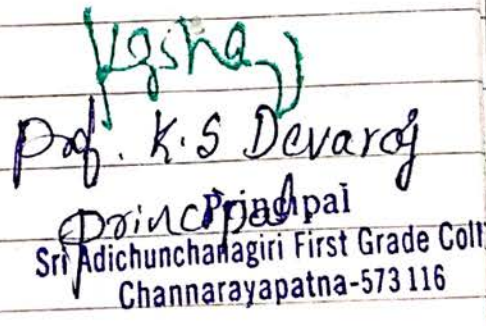 Prof. K.S Devaraj
Principal
Principal
Sri Adichunchanagiri First Grade Coll
Channarayapatna-573 116